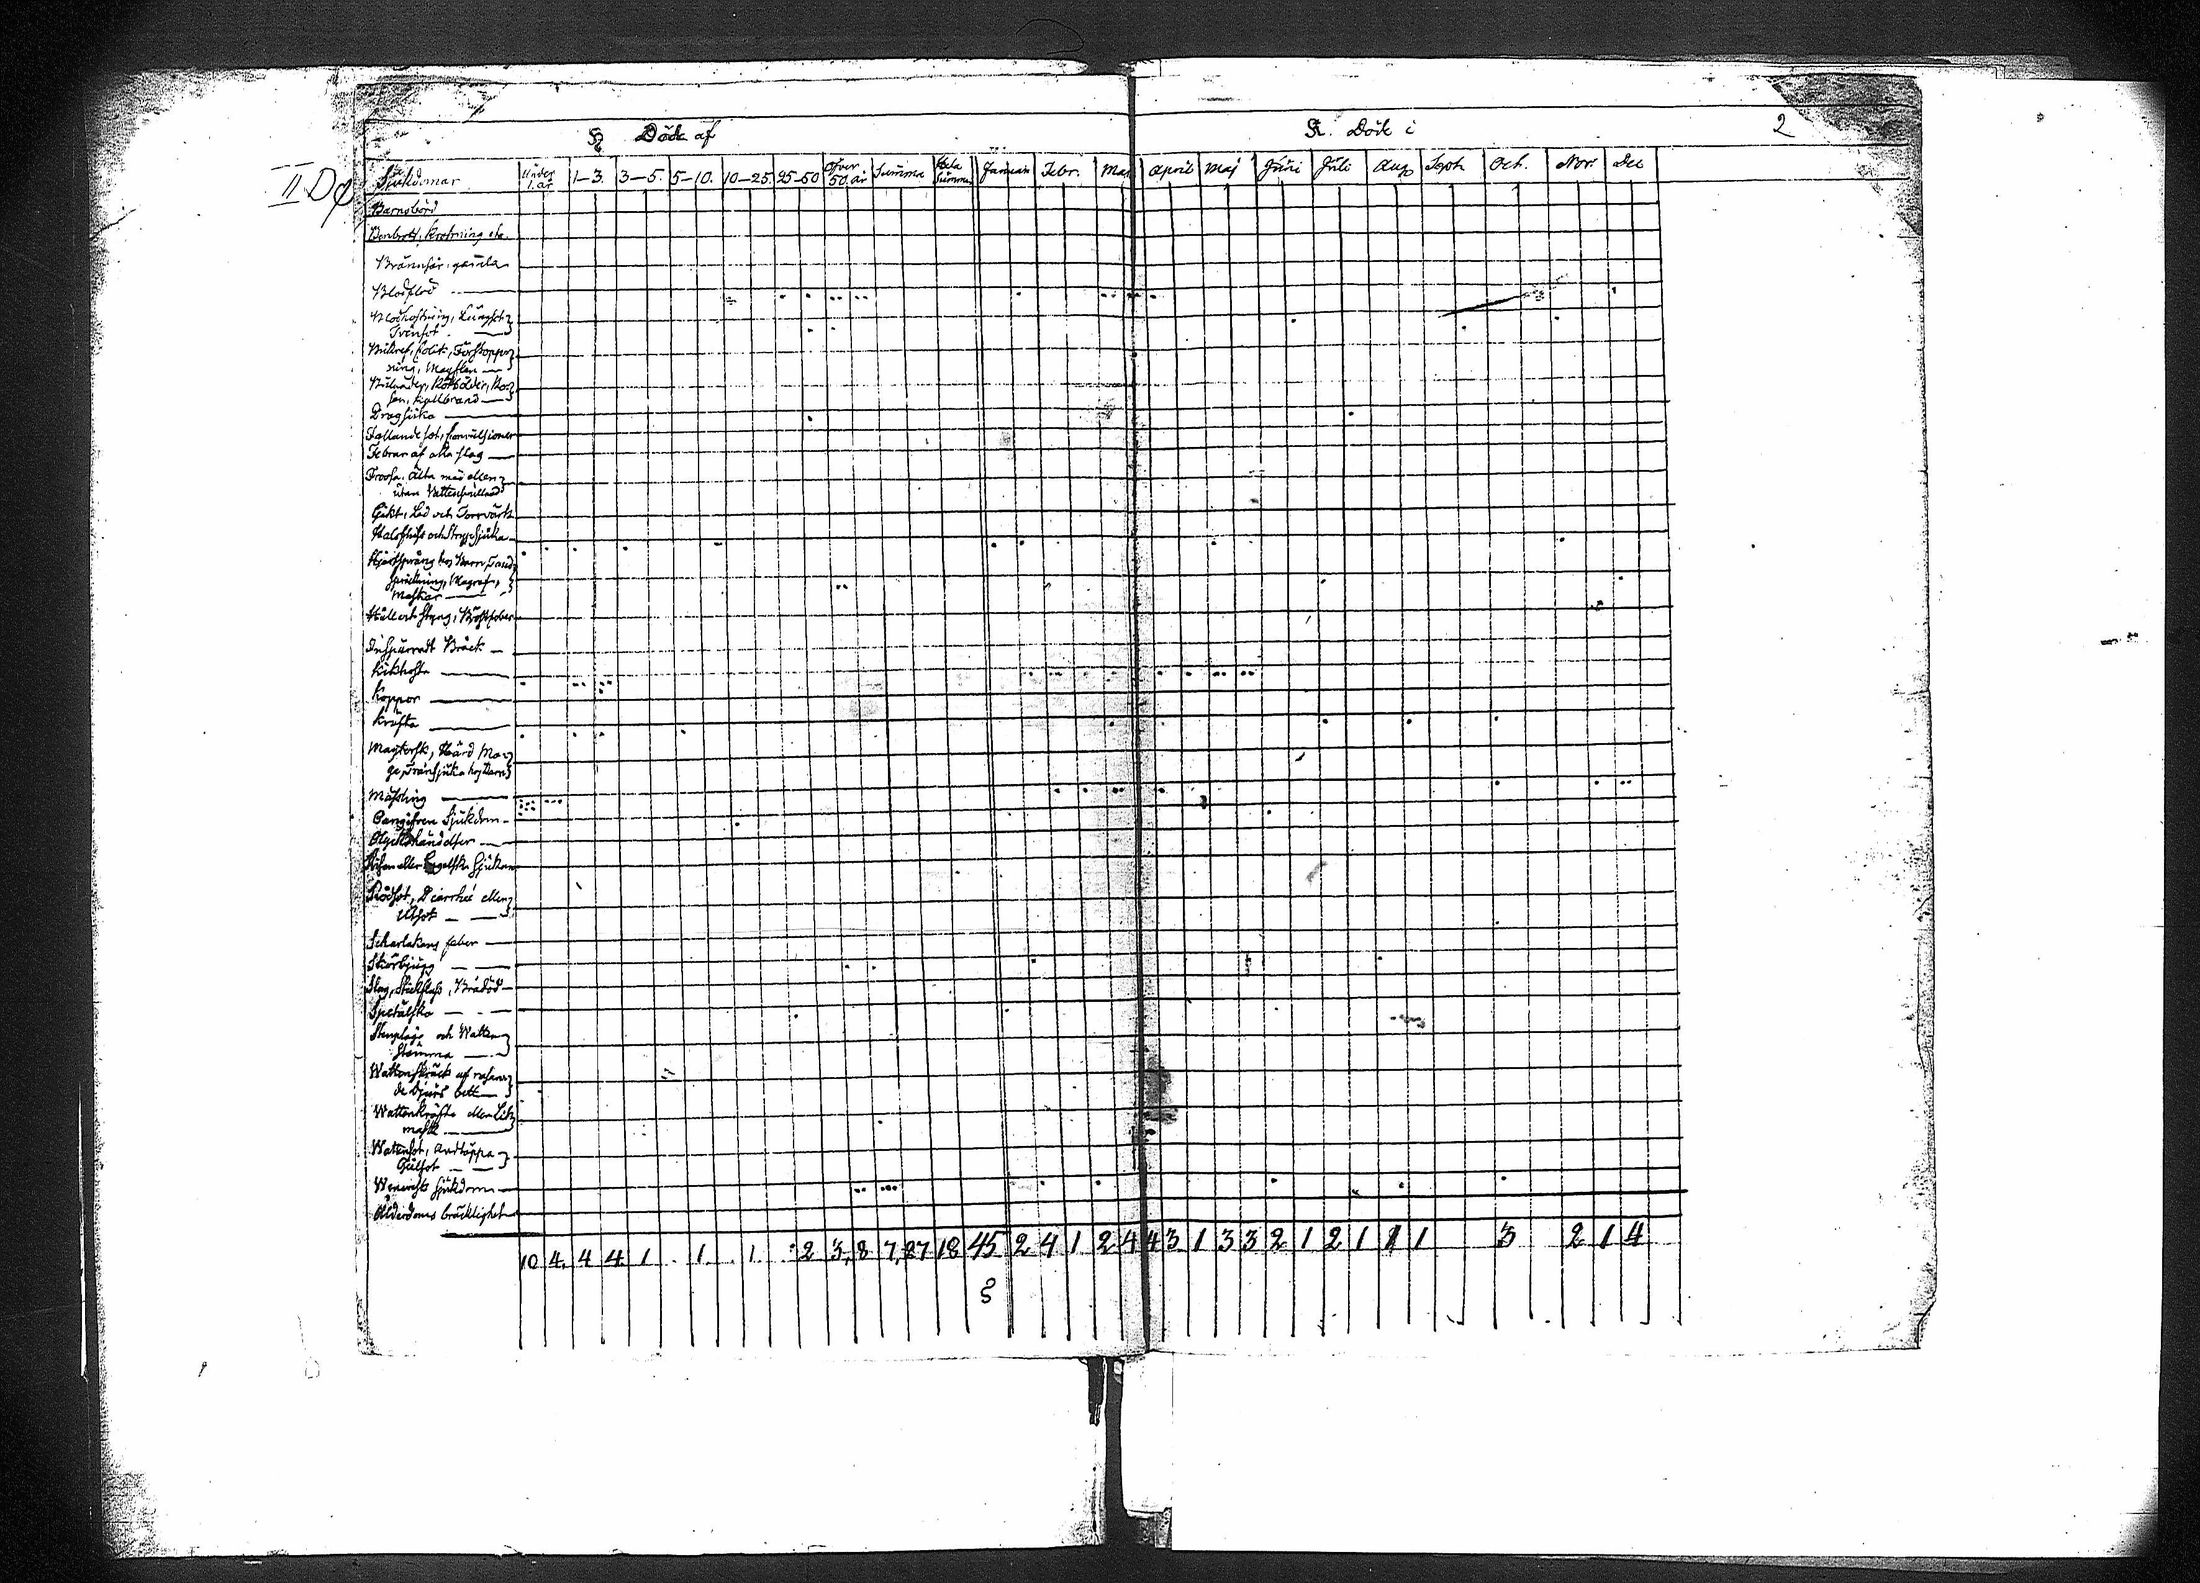 Döde af
Döde i
2
II Dφ
Sjukdomar Under 1. år 1-3. 3-5. 5-10. 10-25. 25-50 Öfver 50. år Summa Hela Summa Januari Febr. Mar April Maj Juni Juli Aug Sept. Oct. Nov. Dec
Barnsbörd
Benbrott, Krossning etc.
Brännsår, gamla
Blodflod
Blodhostning, Lungsot
Tvinsot
Bukref, Colik, Förstopp
ning, Magplågn
Bulnader, Rötbölder, Ro
sen, Kallbrand
Dragsjuka
Fallande sot, Convulsioner
Febrar af alla slag
Frossa, Älta med eller
utan Vattusvullnad
Gikt, Led och Torrvärk
Halsfluss och Strypsjuka
Hjertsprång hos Barn, Tand
sprickning, Magref,
Maskar
Håll och Styng, Bröstfeber
Inspärradt Bråck
Kikhosta
Koppor
Kräfta
Magtorsk, Hård Ma
ge, Tränsjuka hos Barn
Mässling
Oangifven Sjukdom
Olyckshändelser
Risen eller Engelska Sjukan
Rödsot, Diarrhée eller
Utsot
Scharlakans feber
Skörbjugg
Slag, Stickfluss, Brådöd
Spetälska
Stenplåga och Vatten
stämma
Wattuskräck af rasan
de Djurs bett
Wattenkräfta eller Lik
mask
Wattusot, Andtäppa
Gulsot
Venerisk Sjukdom
Ålderdoms bräcklighet
10 4 4 4 1 1 1 2 3 8 7 27 18 45 2 4 1 2 4 4 3 1 3 3 2 1 2 1 1 1 3 2 1 4